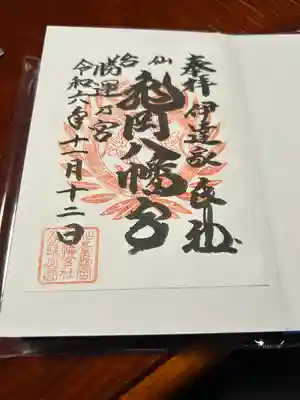 奉拝 伊達家 氏社
仙台
亀岡八幡宮
勝運乃宮
令和六年十一月十二日